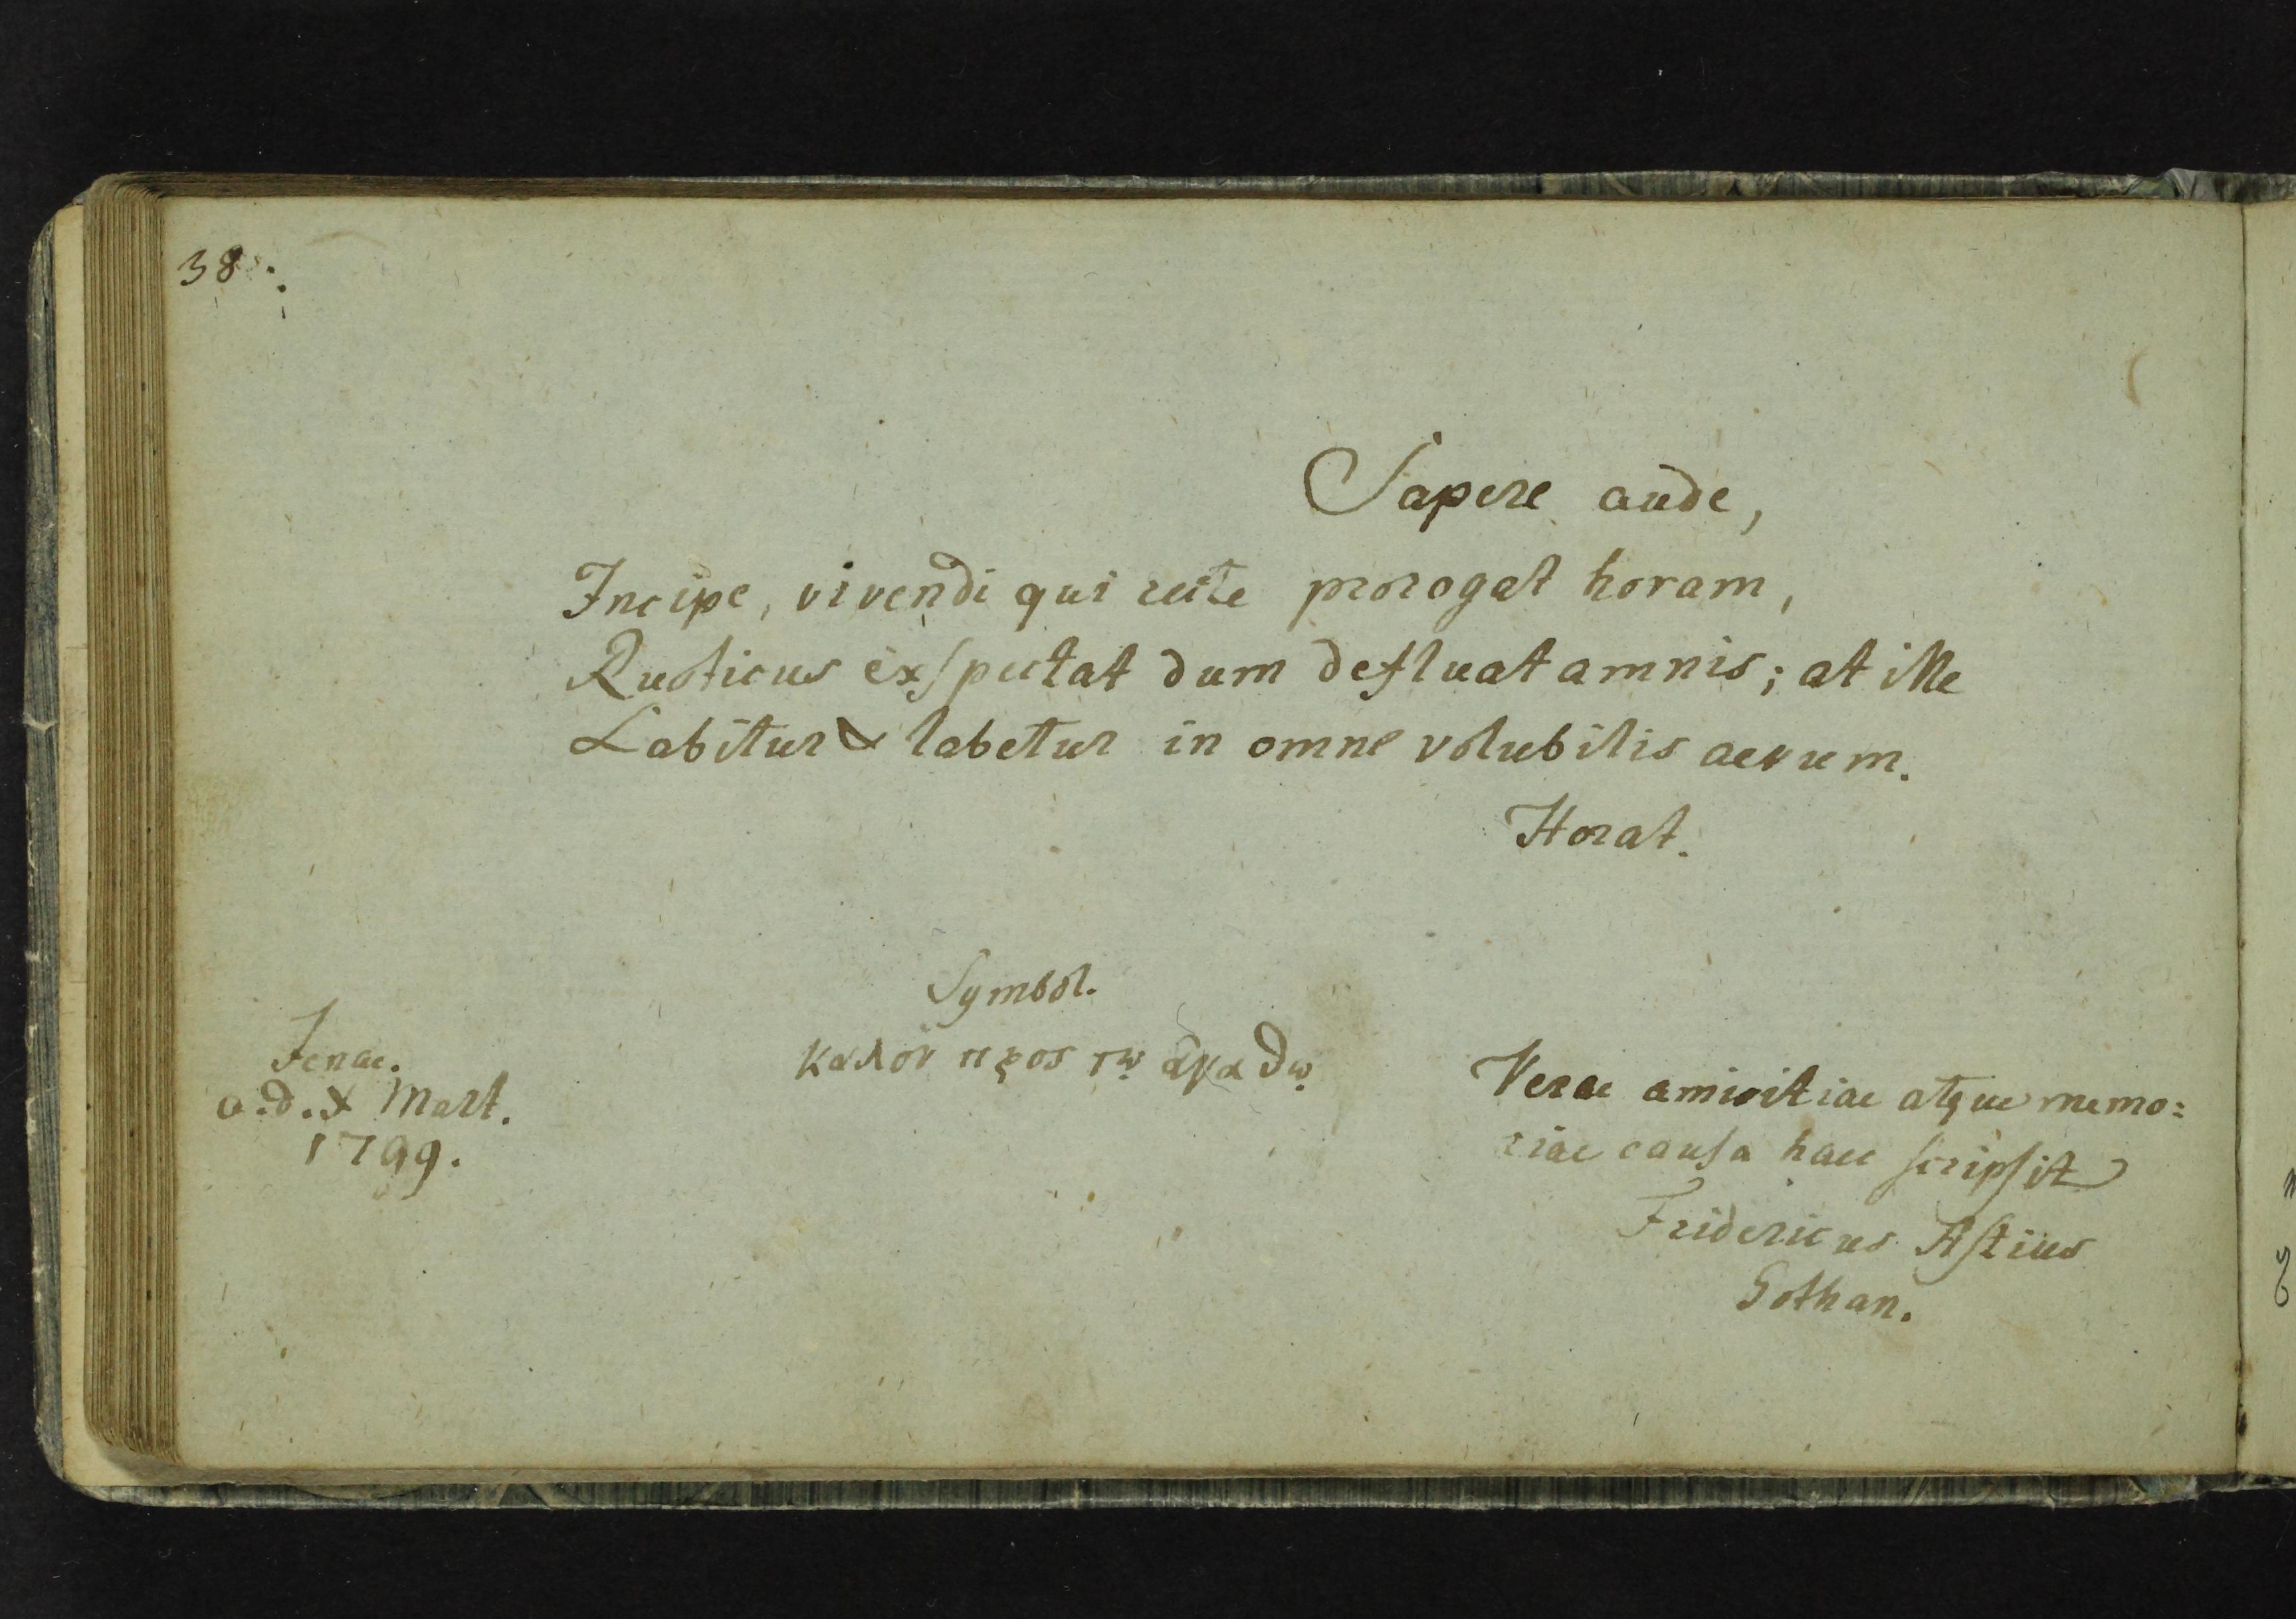 38.
Sapere aude,
Incipe, vivendi qui recte prorogat horam,
Rusticus exspectat dum defluat amnis; at ille
Labitur & labetur in omne volubilis aevum.
Horat.
Symbol.
καλον προς τῳ
Jenae.
a. d. X Mart.
1799.
Verae amicitiae atque memo:
riae causa haec scripsit
Fridericus Astius
Gothan.